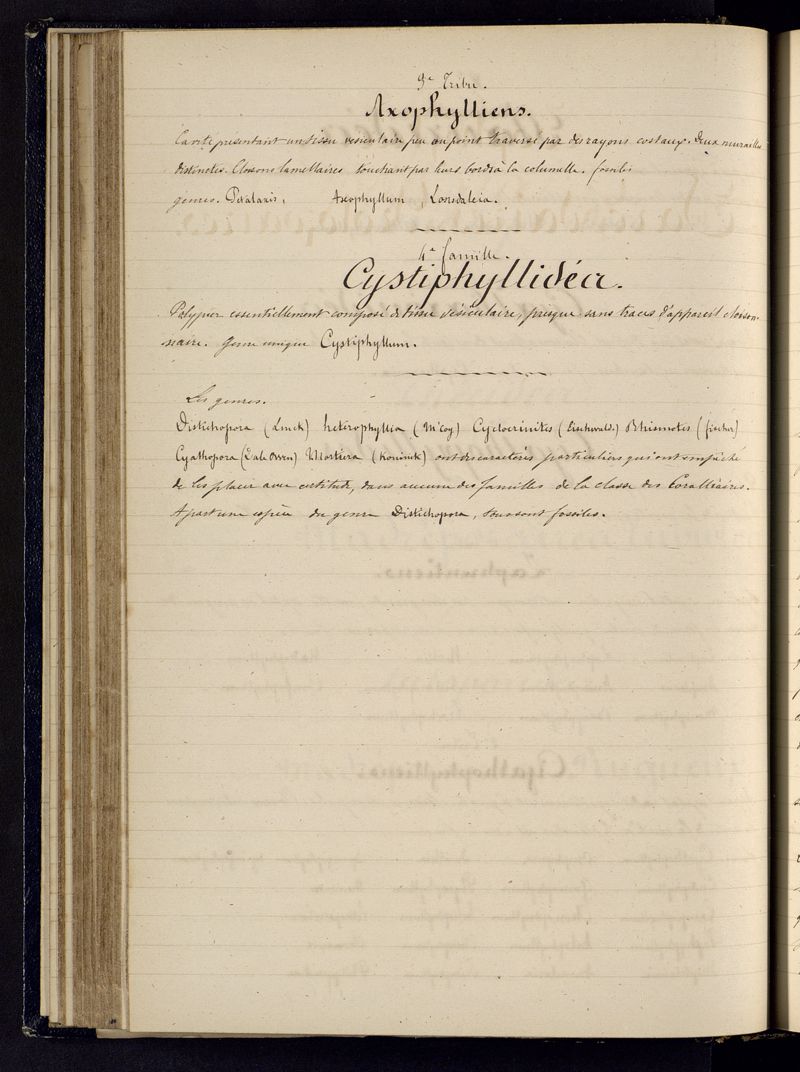 3e Tribu.
Axophylliens.
Cavité présentant un tissu vésiculaire peu ou point traversé par des rayons costaux. Deux murailles
distinctes. Cloisons lamellaires touchant par leurs bords à la columelle. fossiles
genres. Petalaxis, Axophyllum, Lonsdaleia.
4e famille.
Cystiphyllidéa.
Polypier essentiellement composé de tissu vésiculaire, presque sans traces d'appareil cloison-
naire. Genre unique Cystiphyllum.
Les genres.
Distichopora (Lmck) heterophyllia (M'Coy) Cyclocrinites (Eischwald.) Rhismotes (fischer)
Cyathopora (Dale Owen) Mortiera (Koninck) ont des caractères particuliers qui ont empêché
de les placer avec certitude, dans aucune des familles de la classe des Coralliaires.
Apart une espèce du genre Distichopora, tous sont fossiles.